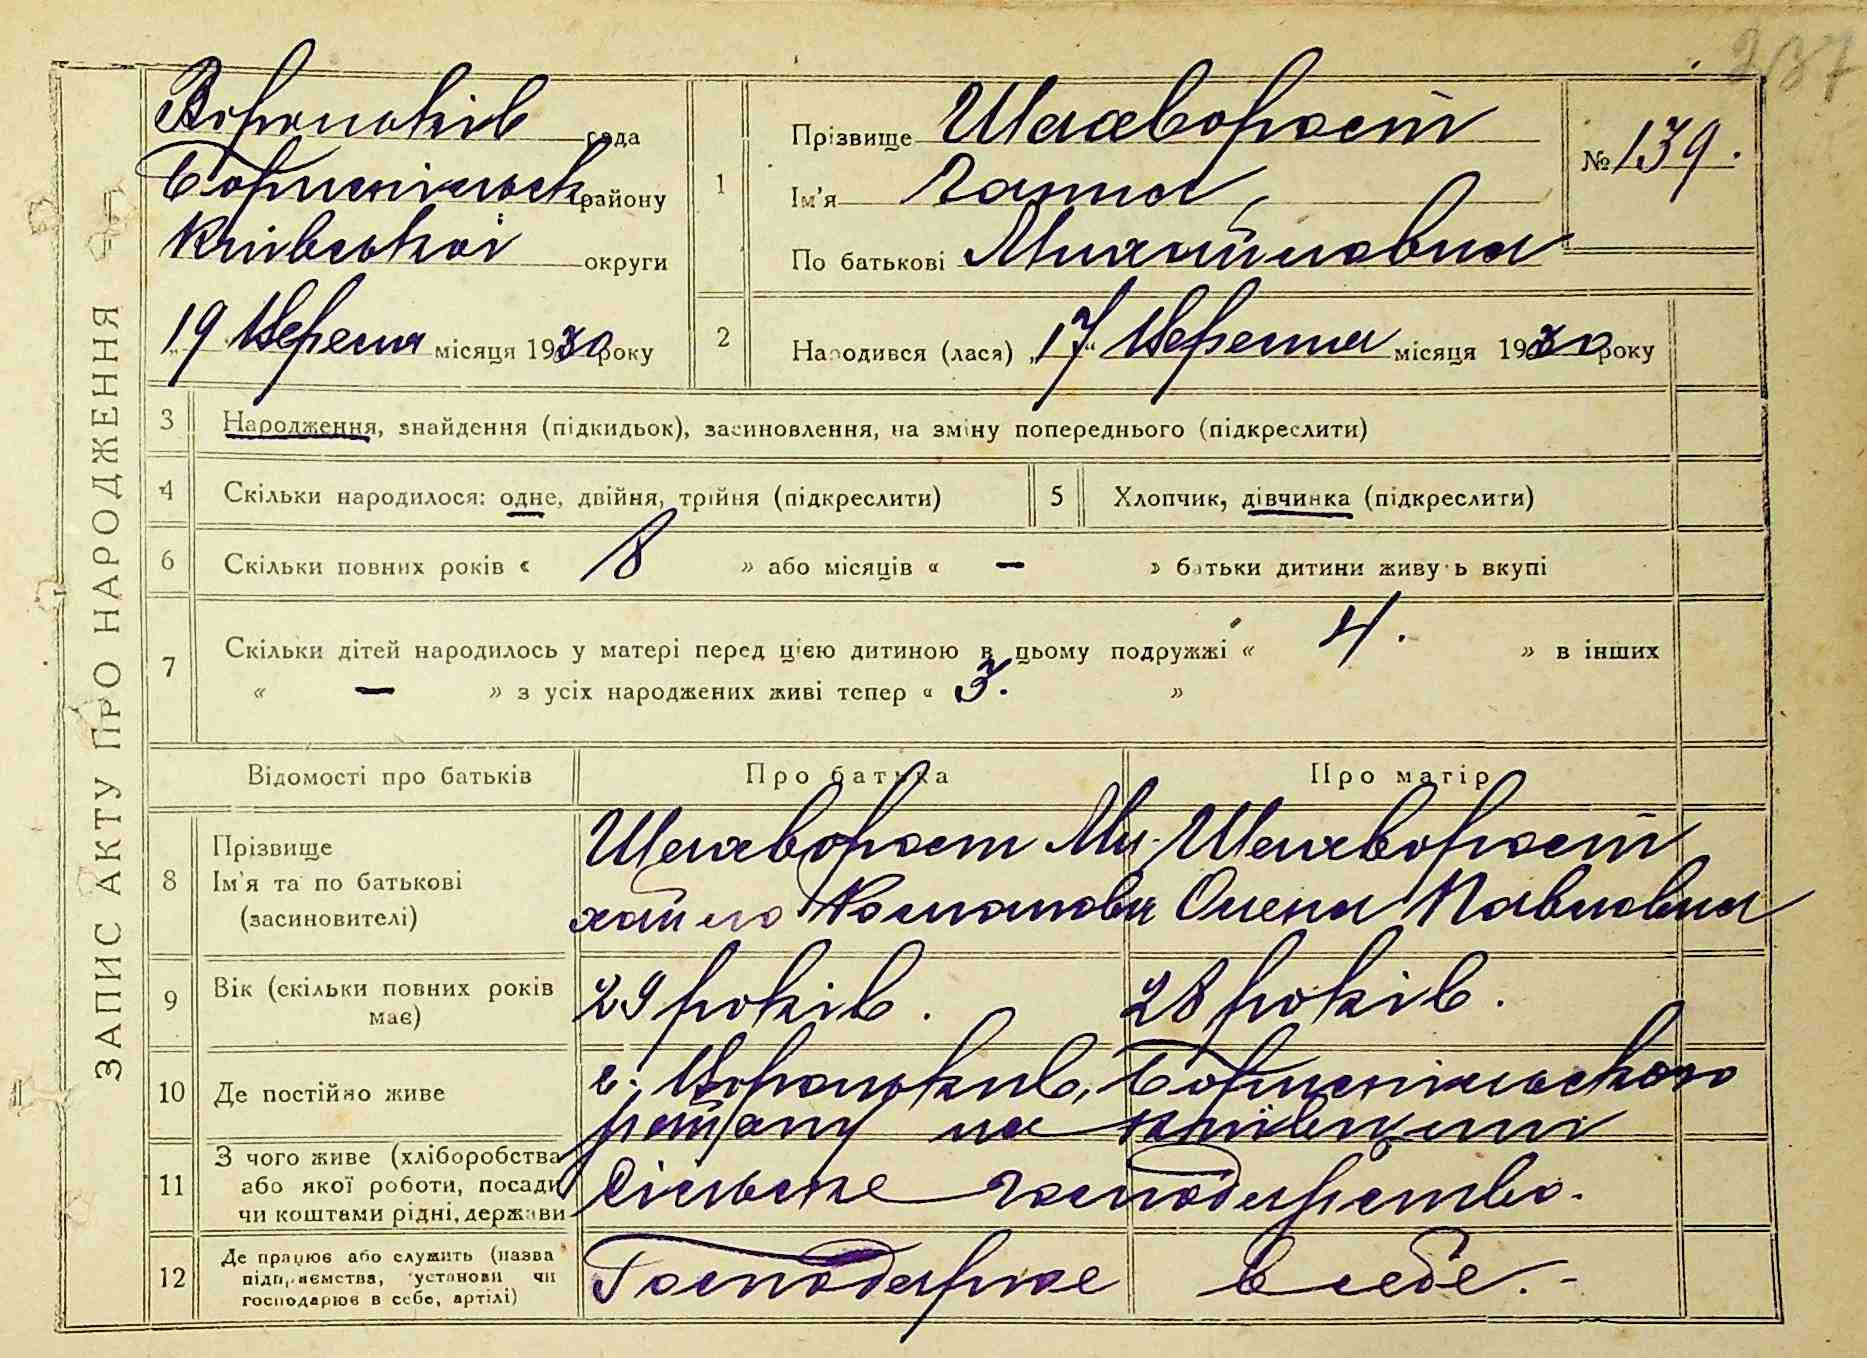 237
ЗАПИС АКТУ ПРО НАРОДЖЕННЯ
Вороньків сада
Бориспільськ району
Київської округи
„19 Вересня місяця 1930 року
1
Прізвище Шкаворост
Ім'я Ганна,
По батькові Михайловна
№ 139.
2 Народився (лася) „17“ Вересня місяця 1930 року
3 Народження, знайдення (підкидьок), засиновлення, на зміну попереднього (підкреслити)
4 Скільки народилося: одне, двійня, трійня (підкреслити)
5 Хлопчик, дівчинка (підкреслити)
6 Скільки повних років « 8 » або місяців « – » батьки дитини живуть вкупі
7 Скільки дітей народилось у матері перед цією дитиною в цьому подружжі « 4. » в інших
« – » з усіх народжених живі тепер « 3. »
Відомості про батьків
Про батька
Про матір
8 Прізвище
Ім'я та по батькові
(засиновителі)
Шкаворост Ми-
хайло
Шкаворост
Олена Павловна
9 Вік (скільки повних років
має)
29 років.
28 років.
10 Де постійно живе
с. Вороньків, Бориспільського
району на Київщині
11 З чого живе (хліборобства
або якої роботи, посади
чи коштами рідні, держави
Сільське господарство.
12 Де працює або служить (назва
підприємства, установи чи
господарює в себе, артілі)
Господарює в себе.-